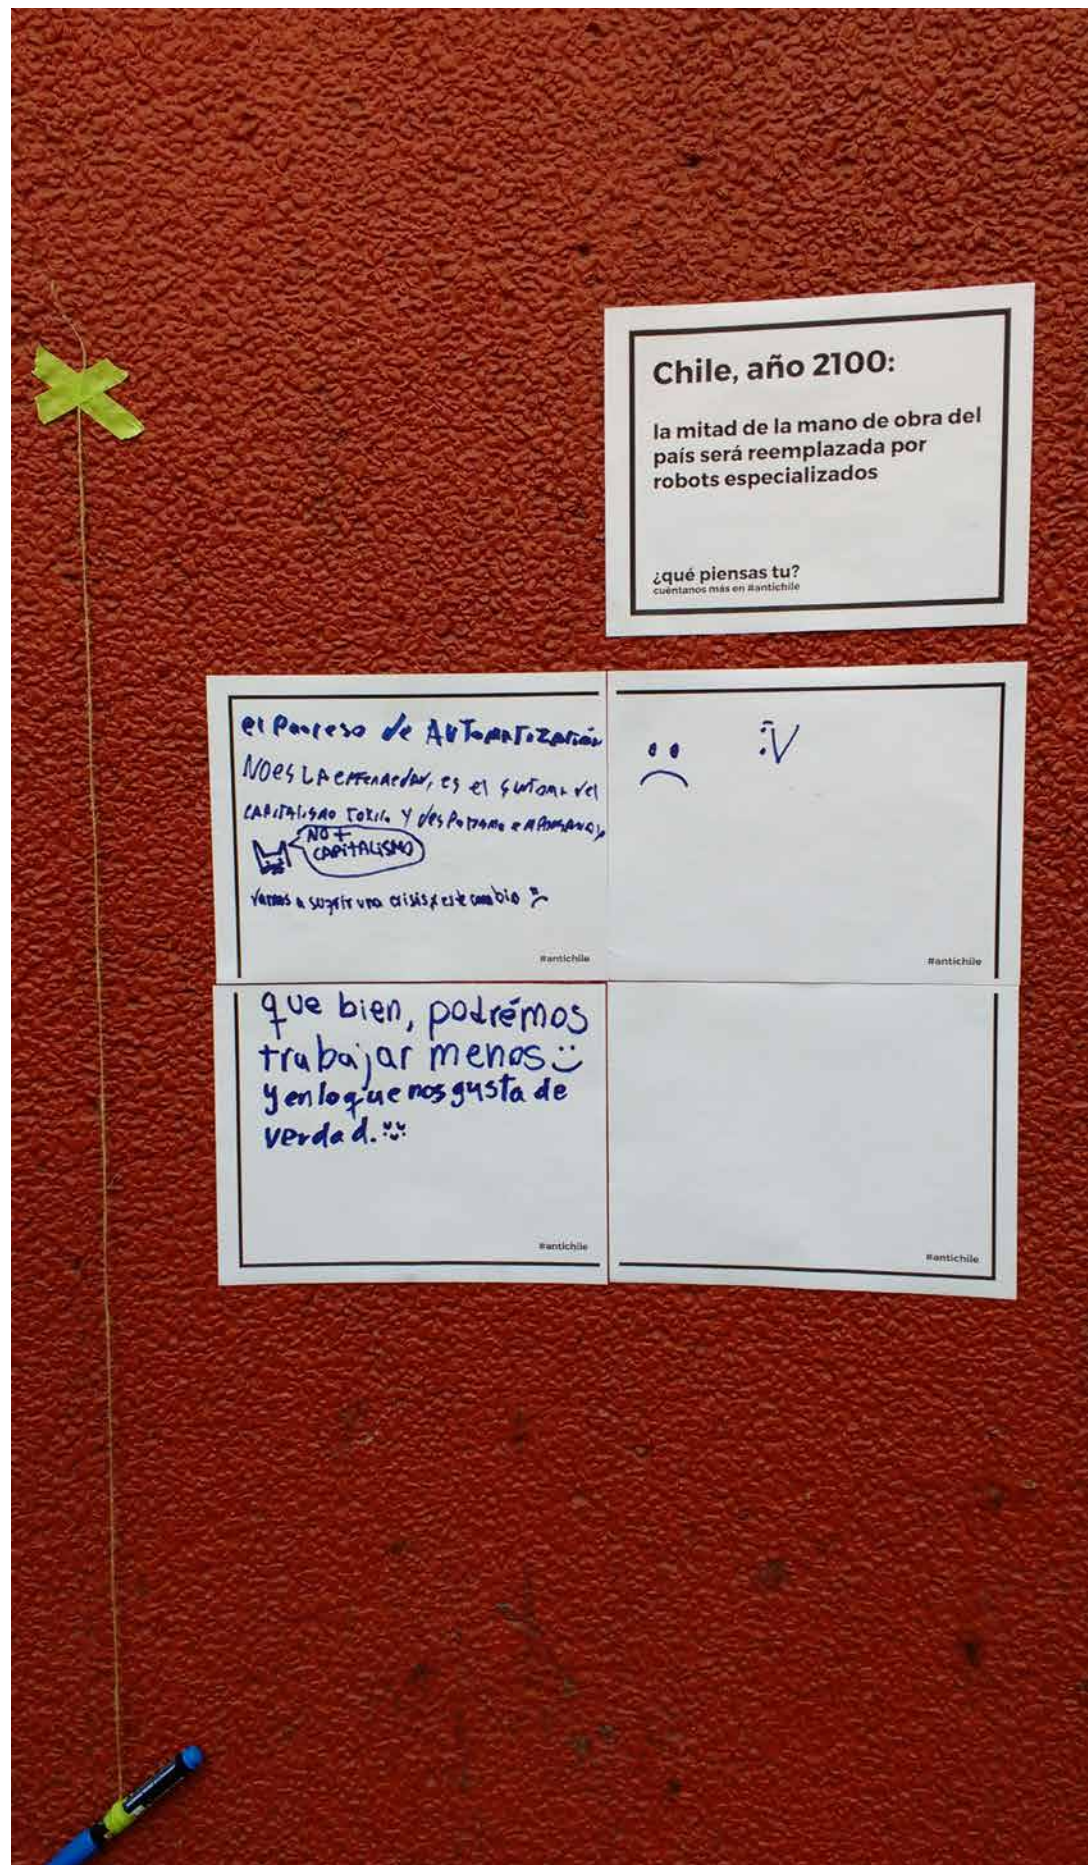 Chile, año 2100:
la mitad de la mano de obra del
país será reemplazada por
robots especializados
¿qué piensas tu?
cuéntanos más en #antichile
el Proceso de AUTOMATIZACIÓN
NO es LA enfermedad, es el sintoma del
CAPITALISMO TOXICO Y des
NO +
CAPITALISMO
vamos a sufrir una crisis x este cambio :(
#antichile
:V
#antichile
que bien, podrémos
trabajar menos :)
y en lo que nos gusta de
verdad.
#antichile
#antichile